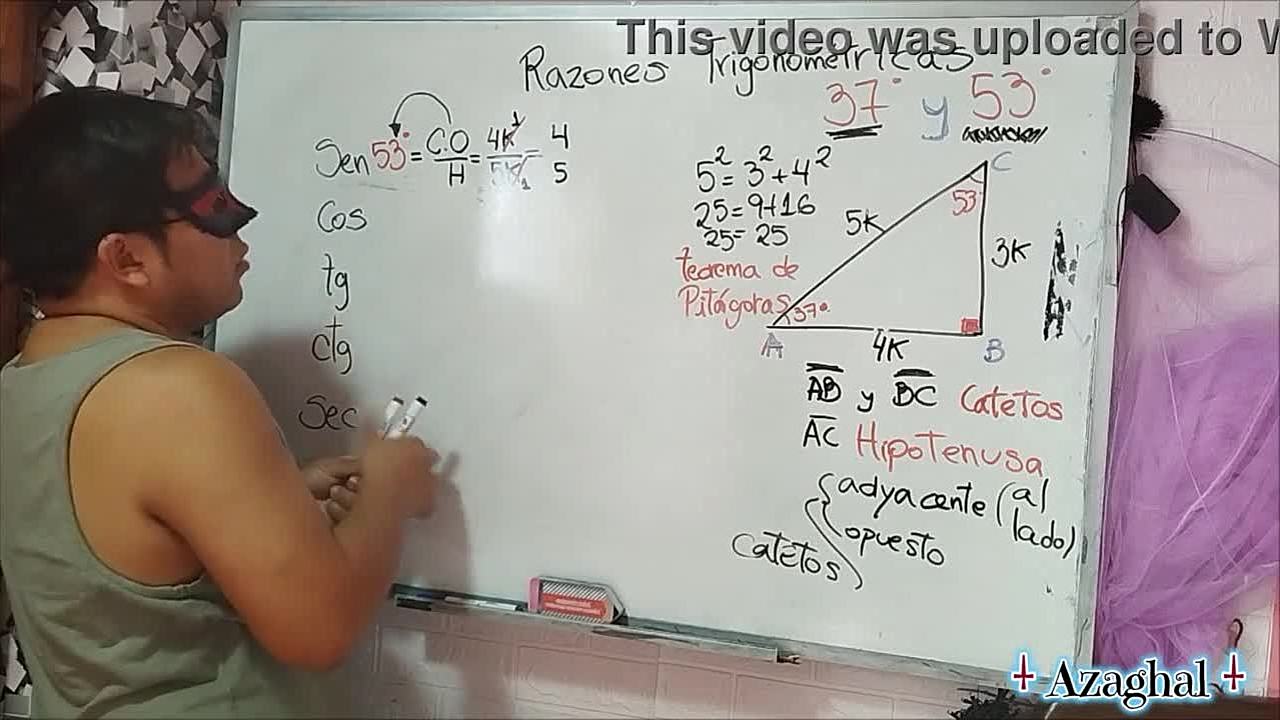 This video was uploaded to
Razones Trigonométricas
37° y 53°
Sen 53° = C.O / H = 4K / 5K = 4 / 5
Cos
tg
ctg
Sec
5² = 3² + 4²
25 = 9+16
25 = 25
teorema de
Pitágoras
C
53°
5K
3K
37°
A
4K
B
AB y BC Catetos
AC Hipotenusa
Catetos
adyacente (al lado)
opuesto
Azaghal